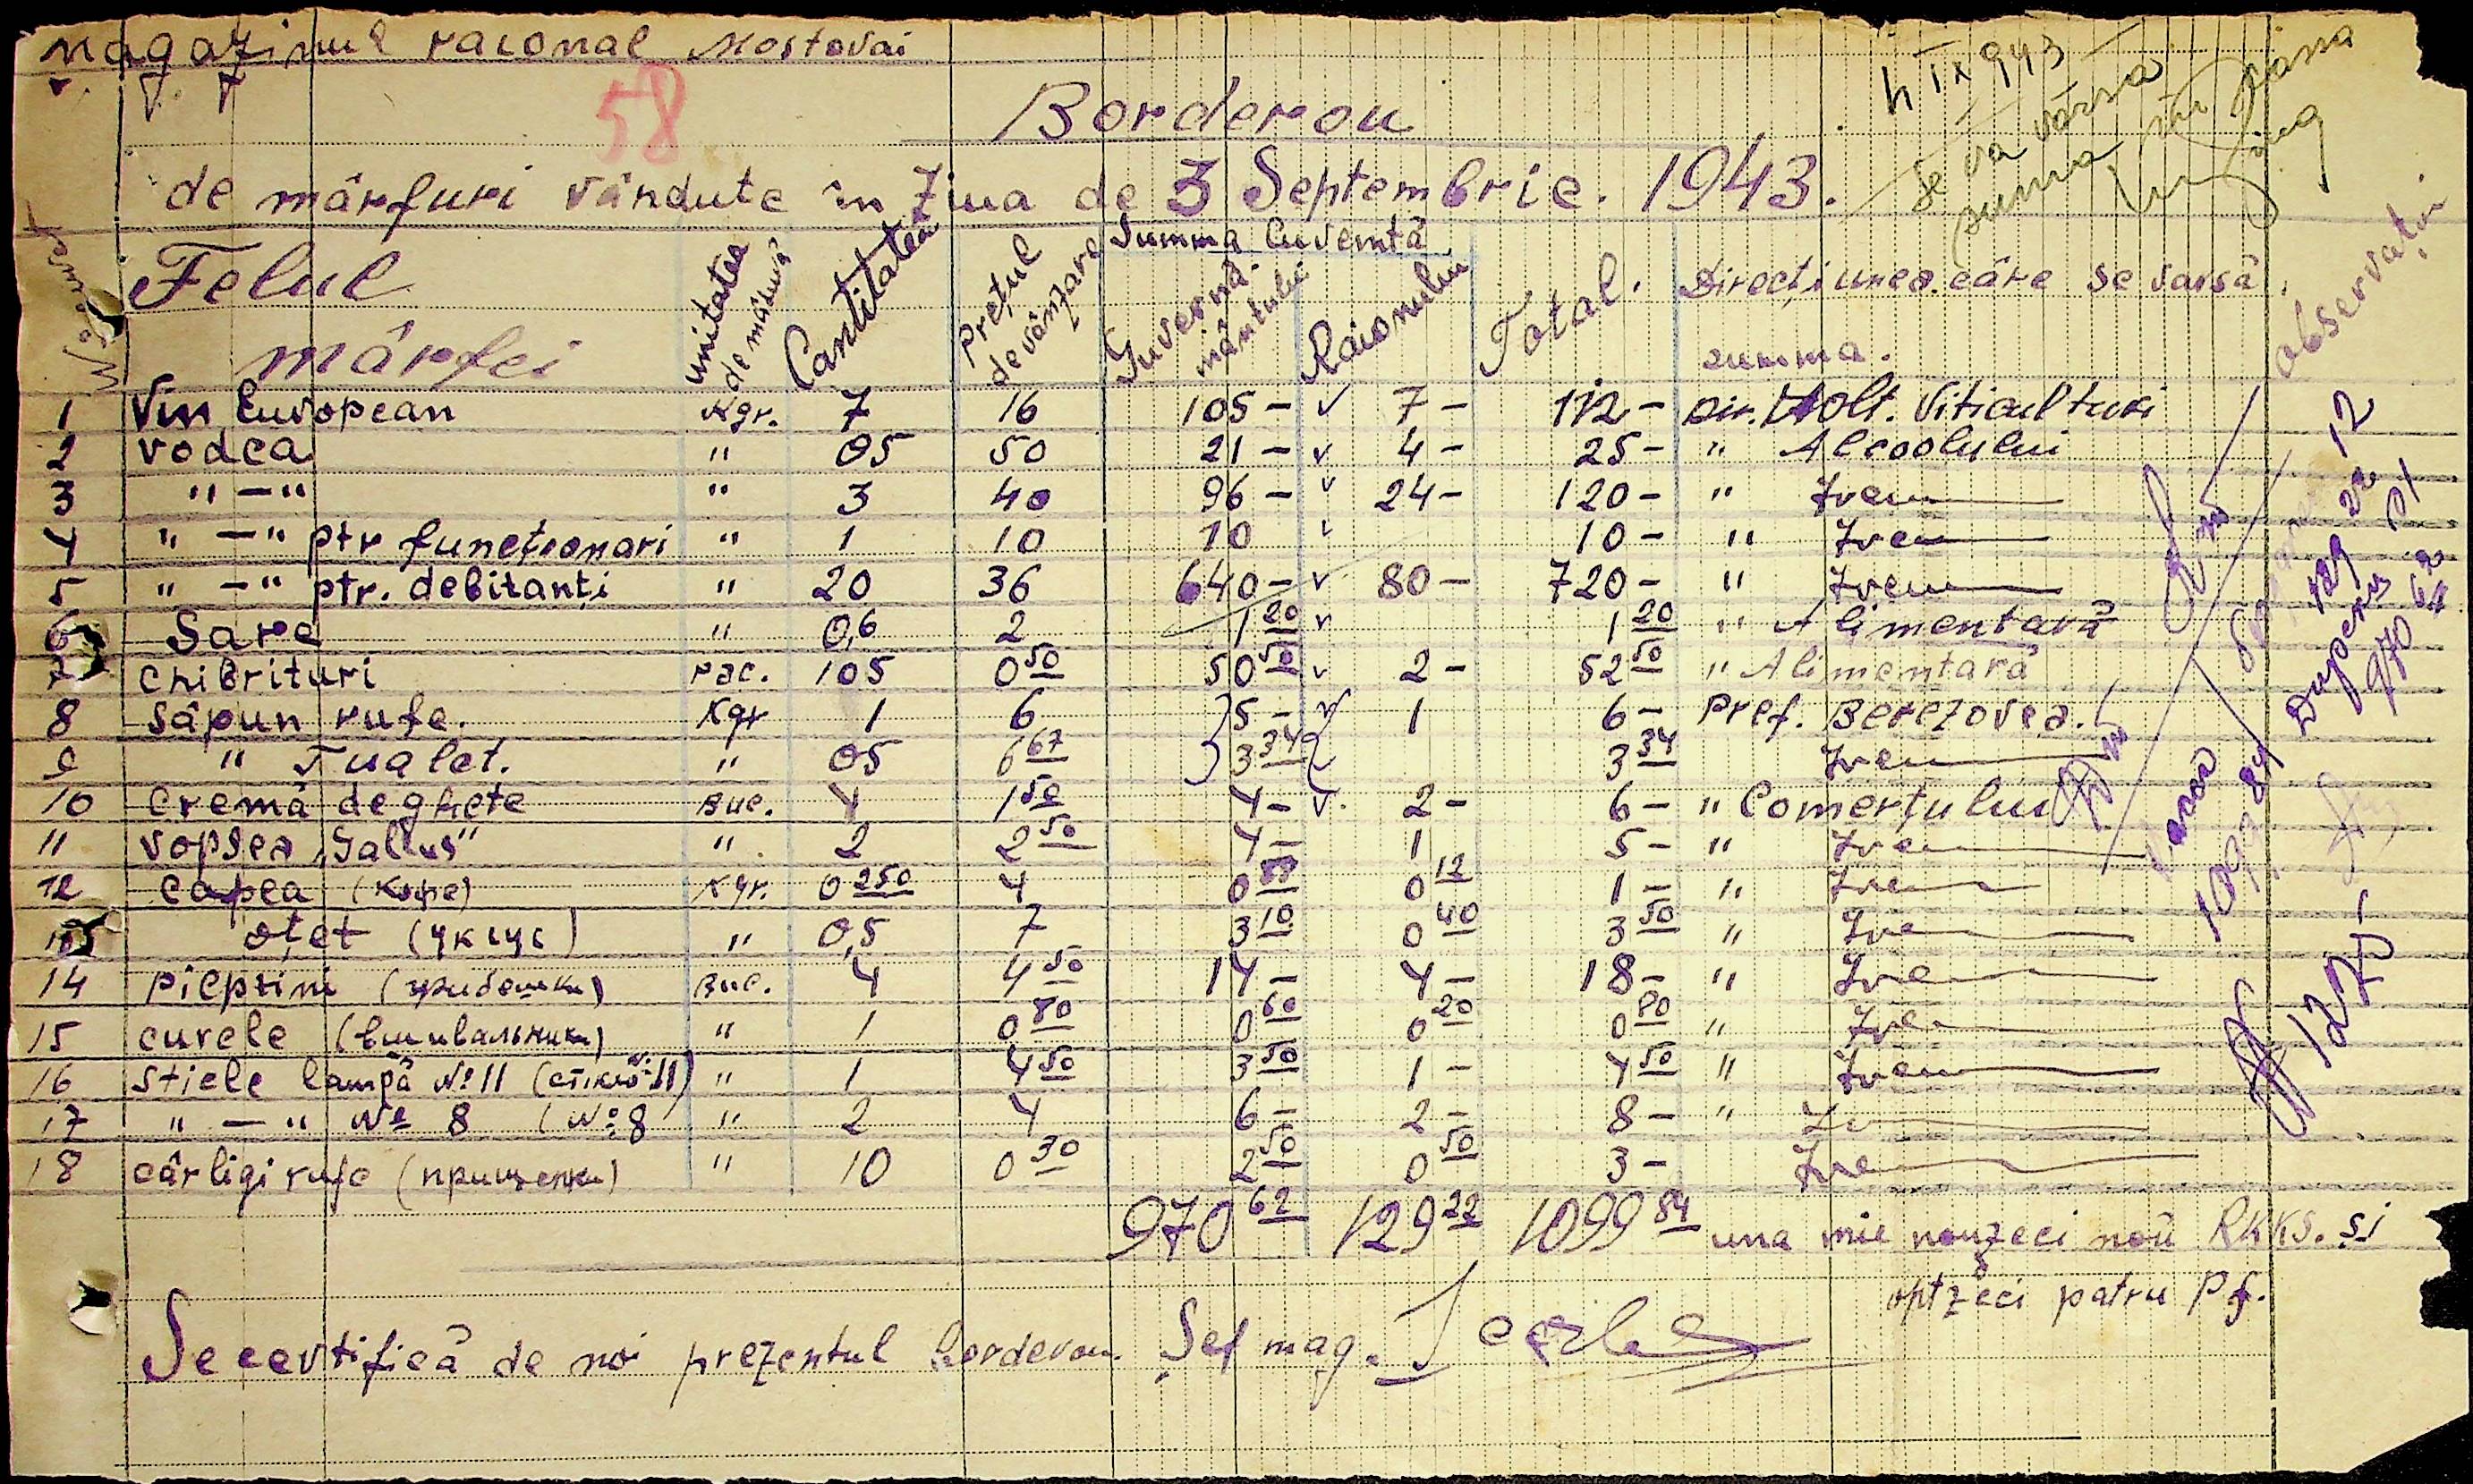 magazinul raional Mostovai
58
Borderou
4 IX 943
se va vărsa
suma în casa
de mărfuri vândute în ziua de 3 Septembrie. 1943.
Felul mărfei
unitatea de măsură
Cantitatea
prețul de vânzare
Summa Cuvemtă
Guvernământului
Raionului
Total.
Direcțiunea căre se varsă summa.
observații
1 Vin European Kgr. 7 16 105 - v 7 - 112 - Dir. Viticulturi
2 vodca " 05 50 21 - v 4 - 25 - " Alcoolului
3 " - " " 3 40 96 - v 24 - 120 - " Ivem
4 " - " ptr funcționari " 1 10 10 v 10 - " Ivem
5 " - " ptr. debitanți " 20 36 640 - v 80 - 720 - " Ivem
6 Sare " 0,6 2 1 20 v 1 20 " Alimentară
7 chibrituri pac. 105 0 50 50 50 v 2 - 52 50 " Alimentară
8 Săpun rufe. Kgr 1 6 5 - v 1 6 - Pref. Berezovca.
9 " Tualet. " 05 6 67 3 34 3 34 Ivem
10 cremă de ghete Buc. 4 1 50 4 - v. 2 - 6 - " Comerțului
11 vopsea "Gallus" " 2 2 50 4 - 1 5 - " Ivem
12 capea (кофе) Kgr. 0 250 4 0 88 0 12 1 - " Ivem
13 oțet (уксус) " 0,5 7 3 10 0 40 3 50 " Ive
14 pieptini (гребешки) Buc. 4 4 50 14 - 4 - 18 - " Ive
15 curele " 1 0 80 0 60 0 20 0 80 " Ive
16 stiele lampă № 11 " 1 4 50 3 50 1 - 4 50 " Ivem
17 " - " № 8 (№ 8 " 2 4 6 - 2 - 8 - " Iv
18 cârligi rufe (прищепки) " 10 0 30 2 50 0 50 3 - Ive
970 62 129 22 1099 84 una mie nouzeci nouă RKKS. și
optzeci patru Pf.
Se certifică de noi prezentul borderou. Șef mag.
129 22
970 62
1099 84
1275